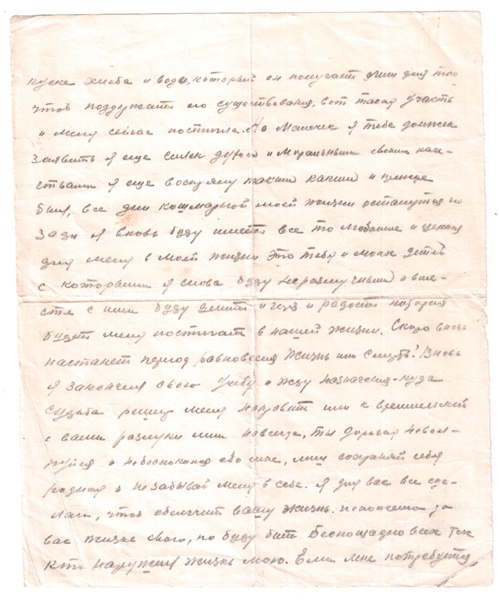 куске хлеба и воды, который он получает лиш для того
чтоб поддержать его существования, вот такая участь
и меня сейчас постигла. Но Манечек я тебе должен
заявить я еще силен духом и моральными своими каче-
ствами я еще воспряну таким каким и
был, все дни кошмарной моей жизни останутся
зади я вновь буду иметь все то любимое и ценное
для меня в моей жизни это тебя и моих детей
с которыми я снова буду неразлучный и вме-
сте с ними буду делить и горе и радости которая
будет меня постигать в нашей жизни. Скоро вновь
настанет период равновесия жизнь или смерть! Вновь
я закончил свою учебу и жду назначения куда
судьба решит меня направит или к временной
с вами разлуки или навсегда, ты дорогая невол-
нуйся и небеспокойся обо мне, лиш сохраняй себя
родная и не забывай меня в себе. Я для вас все сде-
лаю, чтоб облегчит вашу жизнь. положено за
вас жизнь свою, но буду бить беспощадно всех тех
кто нарушил жизнь мою. Если мне потребуется